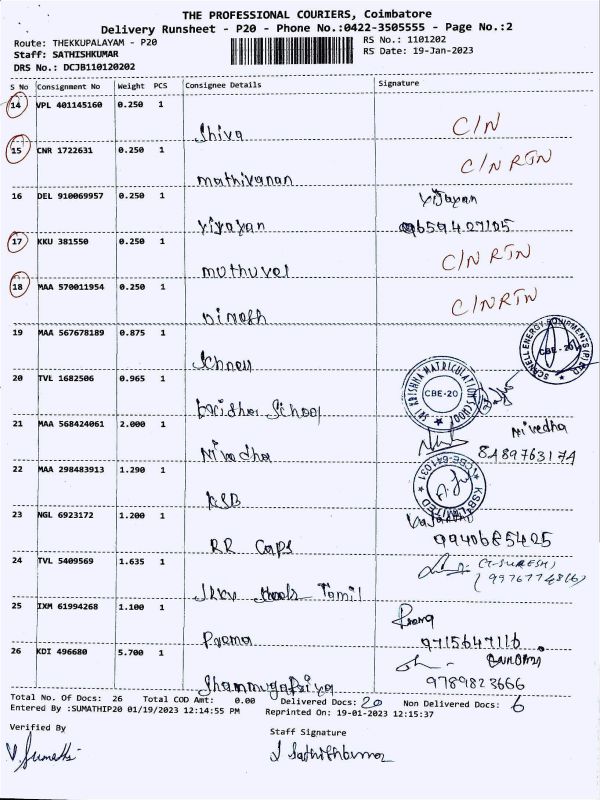 THE PROFESSIONAL COURIERS, Coimbatore
Delivery Runsheet - P20 - Phone No.:0422-3505555 - Page No.:2
Route: THEKKUPALAYAM - P20
RS No.: 1101202
Staff: SATHISHKUMAR
RS Date: 19-Jan-2023
DRS No.: DCJB110120202
S No Consignment No Weight PCS Consignee Details Signature
14 VPL 401145160 0.250 1
Shiva C/N
15 CNR 1722631 0.250 1
mathivanan C/N RTN
16 DEL 910069957 0.250 1
Vijayan
Vijayan
17 KKU 381550 0.250 1
muthuvel C/N RTN
18 MAA 570011954 0.250 1
Dinesh C/N RTN
19 MAA 567678189 0.875 1
SCHNELL ENERGY EQUIPMENTS (P) LTD
CBE-20
20 TVL 1682506 0.965 1
School
SRI KRISHNA MATRICULATION SCHOOL
CBE-20
21 MAA 568424061 2.000 1
Nivedha
Nivedha
8489763174
22 MAA 298483913 1.290 1
KSB
KSB LIMITED
CBE-641 031
23 NGL 6923172 1.200 1
RR Caps
9940685425
24 TVL 5409569 1.635 1
Tamil
(T-SURESH)
25 IXM 61994268 1.100 1
Prema
Prema
9715647116
26 KDI 496680 5.700 1
Shanmugapriya
9789823666
Total No. Of Docs: 26 Total COD Amt: 0.00 Delivered Docs: 20 Non Delivered Docs: 6
Entered By :SUMATHIP20 01/19/2023 12:14:55 PM Reprinted On: 19-01-2023 12:15:37
Verified By
Staff Signature
V. Sumathi
S Sathishkumar